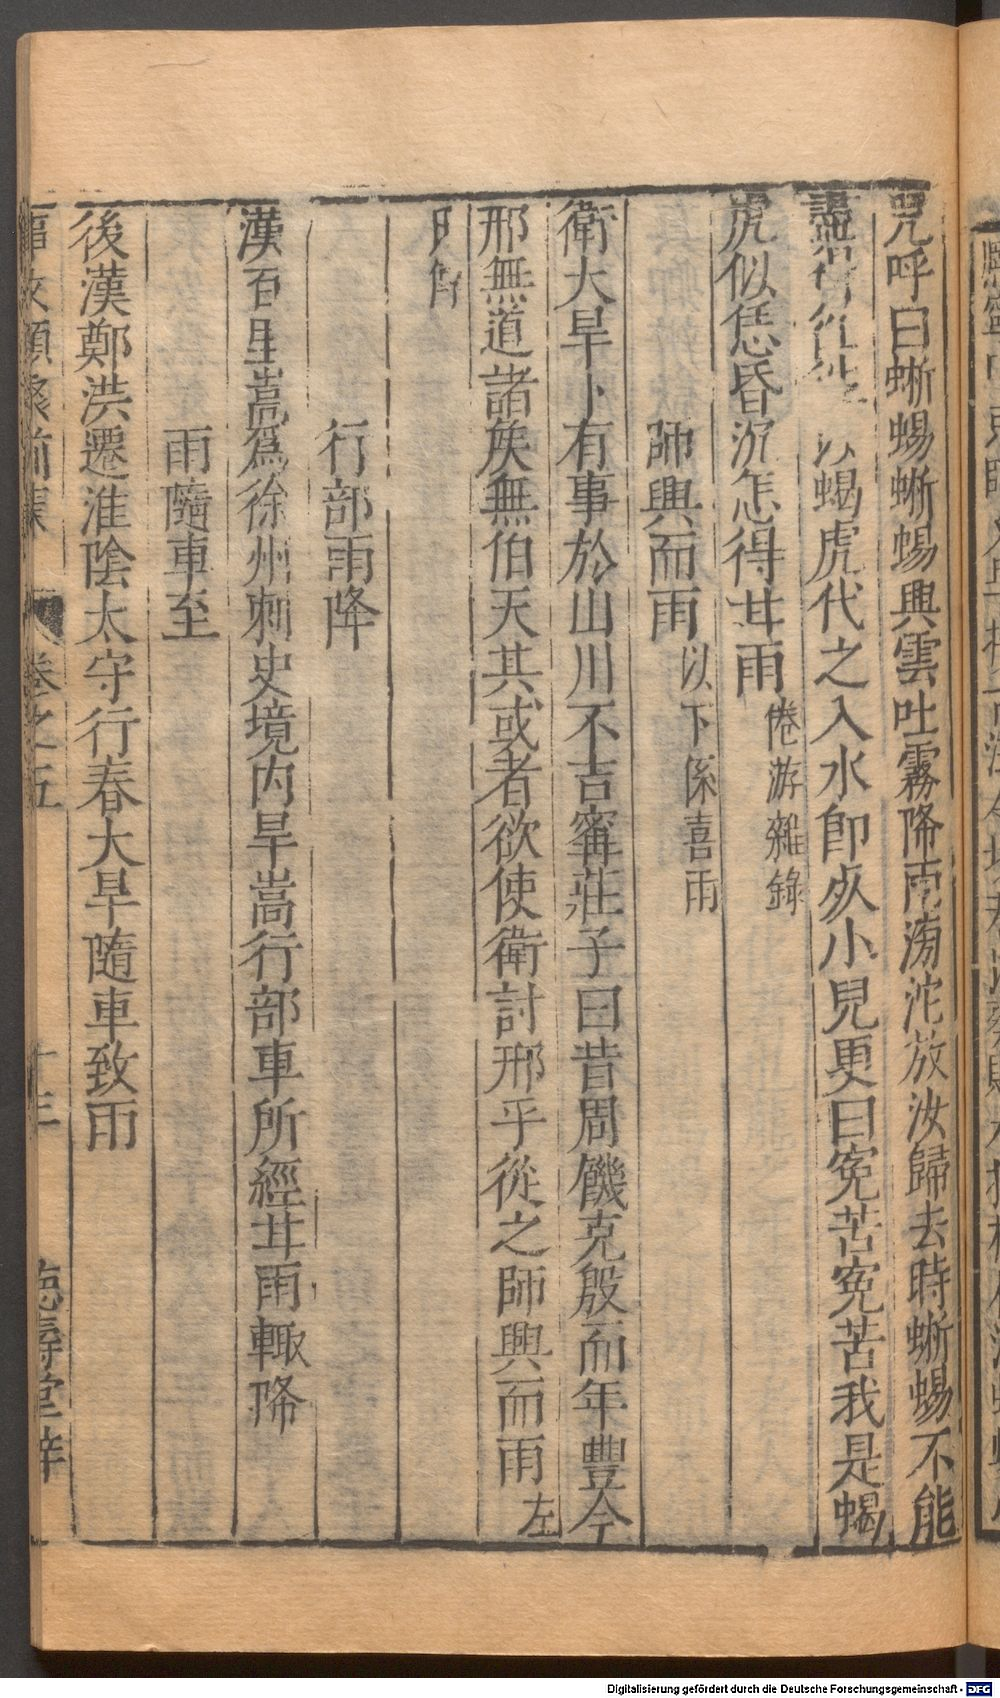 咒呼曰蜥蜴蜥蜴興雲吐霧降雨滂沱放汝歸去時蜥蜴不能
盡 以蝎虎代之入水即死小兒更曰寃苦寃苦我是蝎
虎似恁昏沉怎得甘雨倦游雜錄
師興而雨以下係喜雨
衛大旱卜有事於山川不吉甯莊子曰昔周饑克殷而年豊今
邢無道諸矦無伯天其或者欲使衛討邢乎從之師興而雨左
行部雨降
漢百里嵩爲徐州刺史境内旱嵩行部車所經甘雨輙降
雨隨車至
後漢鄭洪遷淮陰太守行春大旱隨車致雨
事文類聚前集 卷之五 十三 德壽堂梓
Digitalisierung gefördert durch die Deutsche Forschungsgemeinschaft - DFG